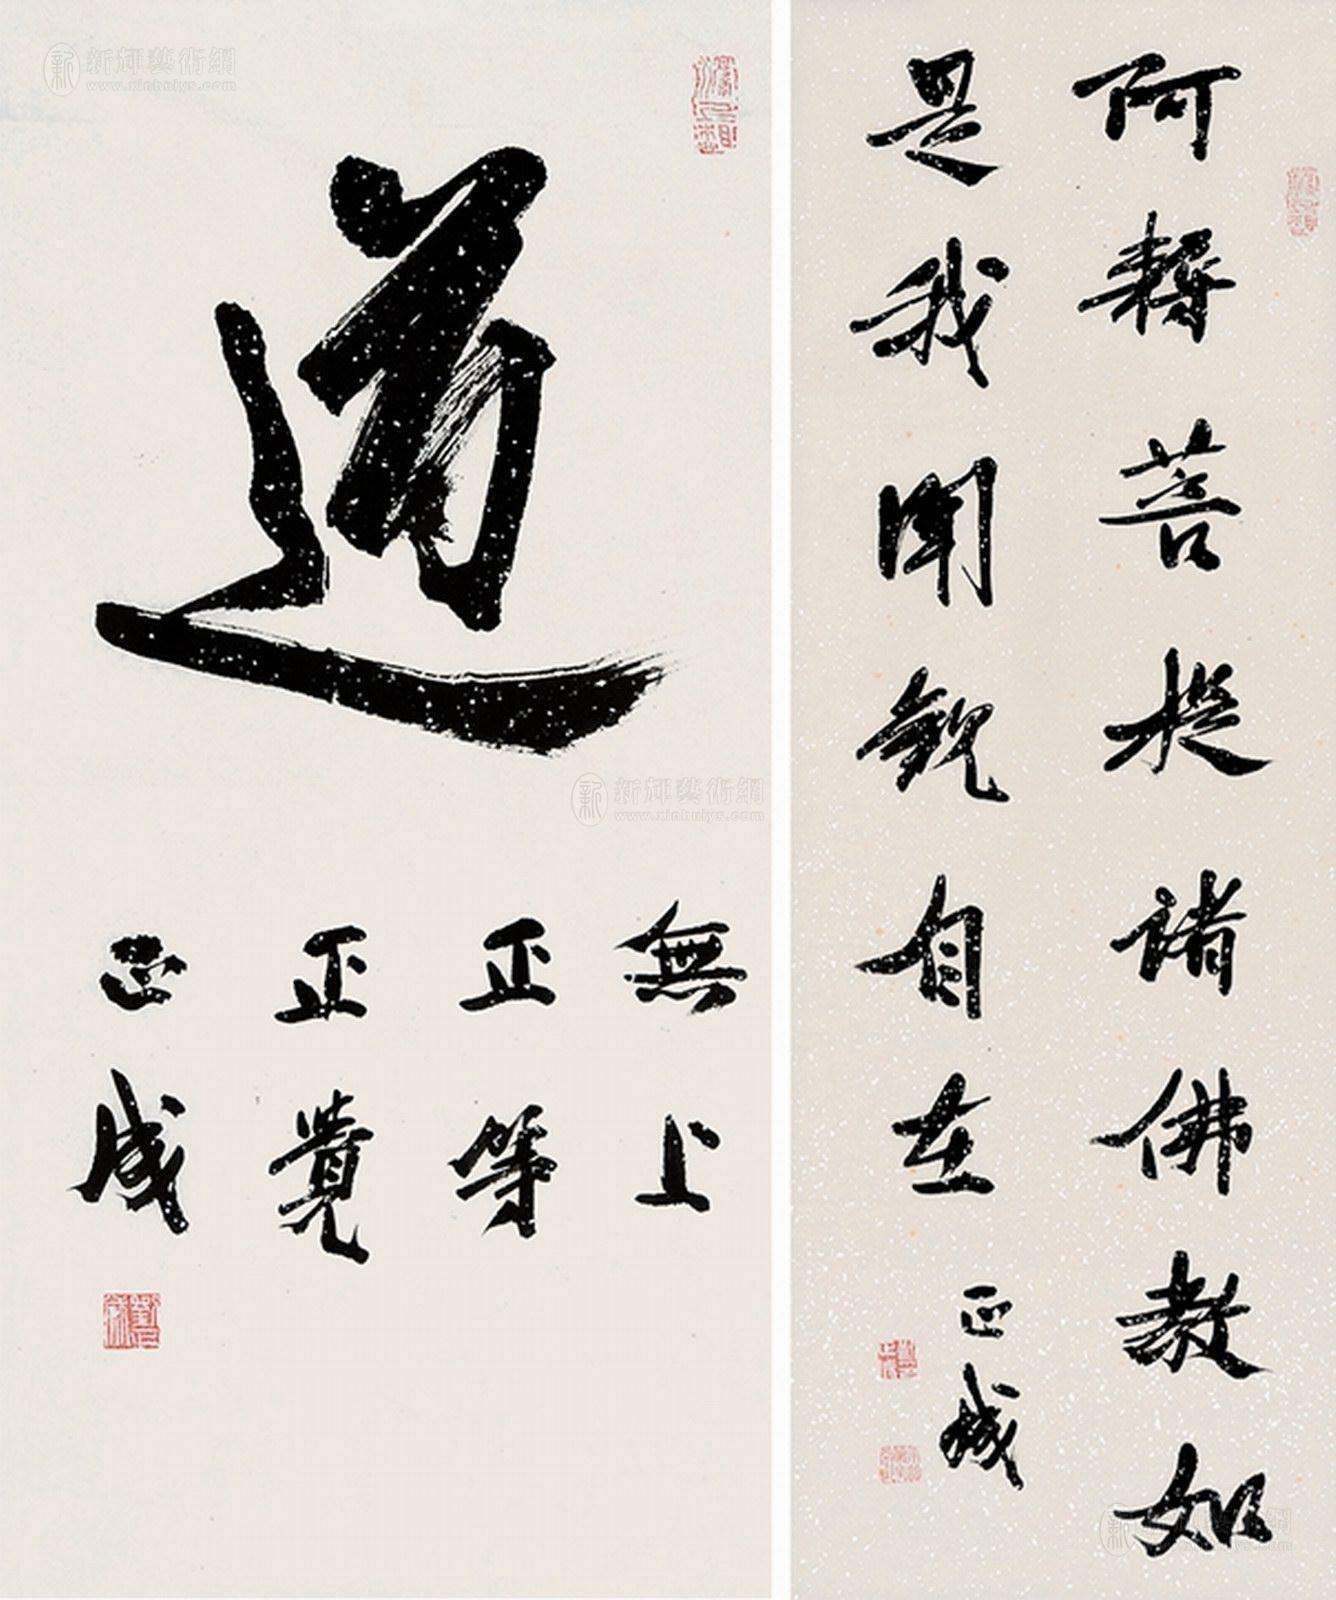 新輝藝術網
www.xinhuiys.com
道
新輝藝術網
www.xinhuiys.com
無上
正等
正覺
正成
阿耨菩提諸佛教如
是我聞觀自在
正成